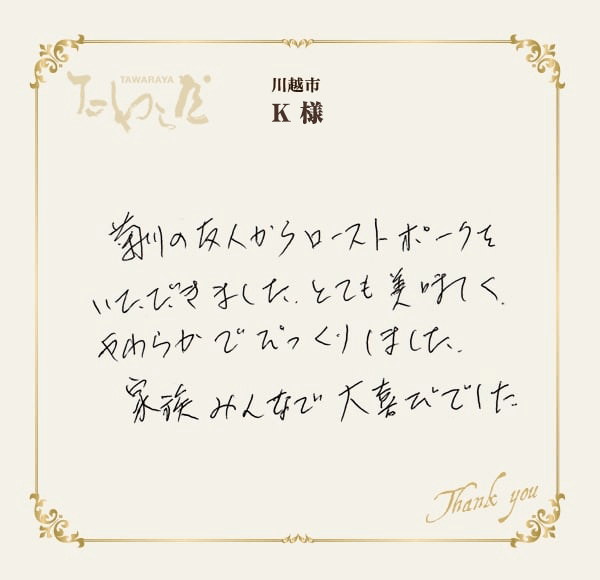 TAWARAYA
たわらや
川越市
K 様
菊川の友人からローストポークを
いただきました。とても美味しく、
やわらかでびっくりしました。
家族みんなで大喜びでした
Thank you